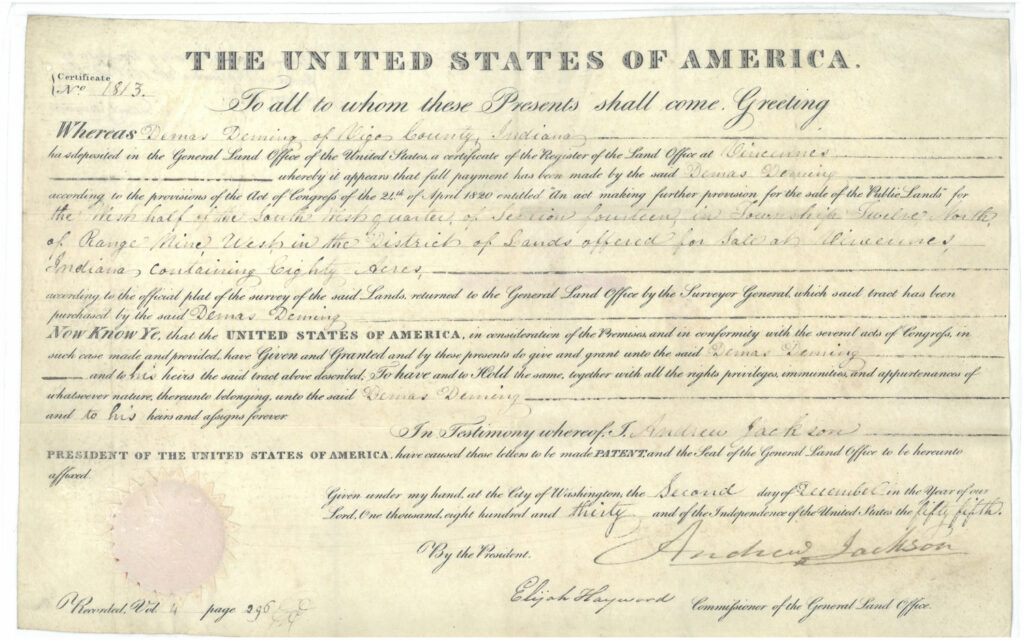 THE UNITED STATES OF AMERICA.
Certificate
No. 1813.
To all to whom these Presents shall come, Greeting
Whereas Demas Deming, of Vigo County, Indiana
has deposited in the General Land Office of the United States, a certificate of the Register of the Land Office at Vincennes
whereby it appears that full payment has been made by the said Demas Deming
according to the provisions of the Act of Congress of the 24th of April 1820 entitled "An act making further provision for the sale of the Public Lands" for
the West half of the South West quarter, of Section fourteen, in Township Twelve North,
of Range Nine West in the District of Lands offered for Sale at Vincennes,
Indiana, containing Eighty Acres,
according to the official plat of the survey of the said Lands, returned to the General Land Office by the Surveyor General, which said tract has been
purchased by the said Demas Deming
Now Know Ye, that the UNITED STATES OF AMERICA, in consideration of the Premises, and in conformity with the several acts of Congress, in
such case made and provided, have Given and Granted and by these presents do give and grant unto the said Demas Deming
and to his heirs the said tract above described; To have and to Hold the same, together with all the rights privileges, immunities, and appurtenances of
whatsoever nature, thereunto belonging, unto the said Demas Deming
and to his heirs and assigns forever.
In Testimony whereof, I, Andrew Jackson
PRESIDENT OF THE UNITED STATES OF AMERICA, have caused these letters to be made PATENT, and the Seal of the General Land Office to be hereunto
affixed.
Given under my hand, at the City of Washington, the Second day of December in the Year of our
Lord, One thousand, eight hundred and thirty and of the Independence of the United States the fifty fifth.
By the President. Andrew Jackson
Elijah Hayward Commissioner of the General Land Office.
Recorded, Vol. 4 page 296